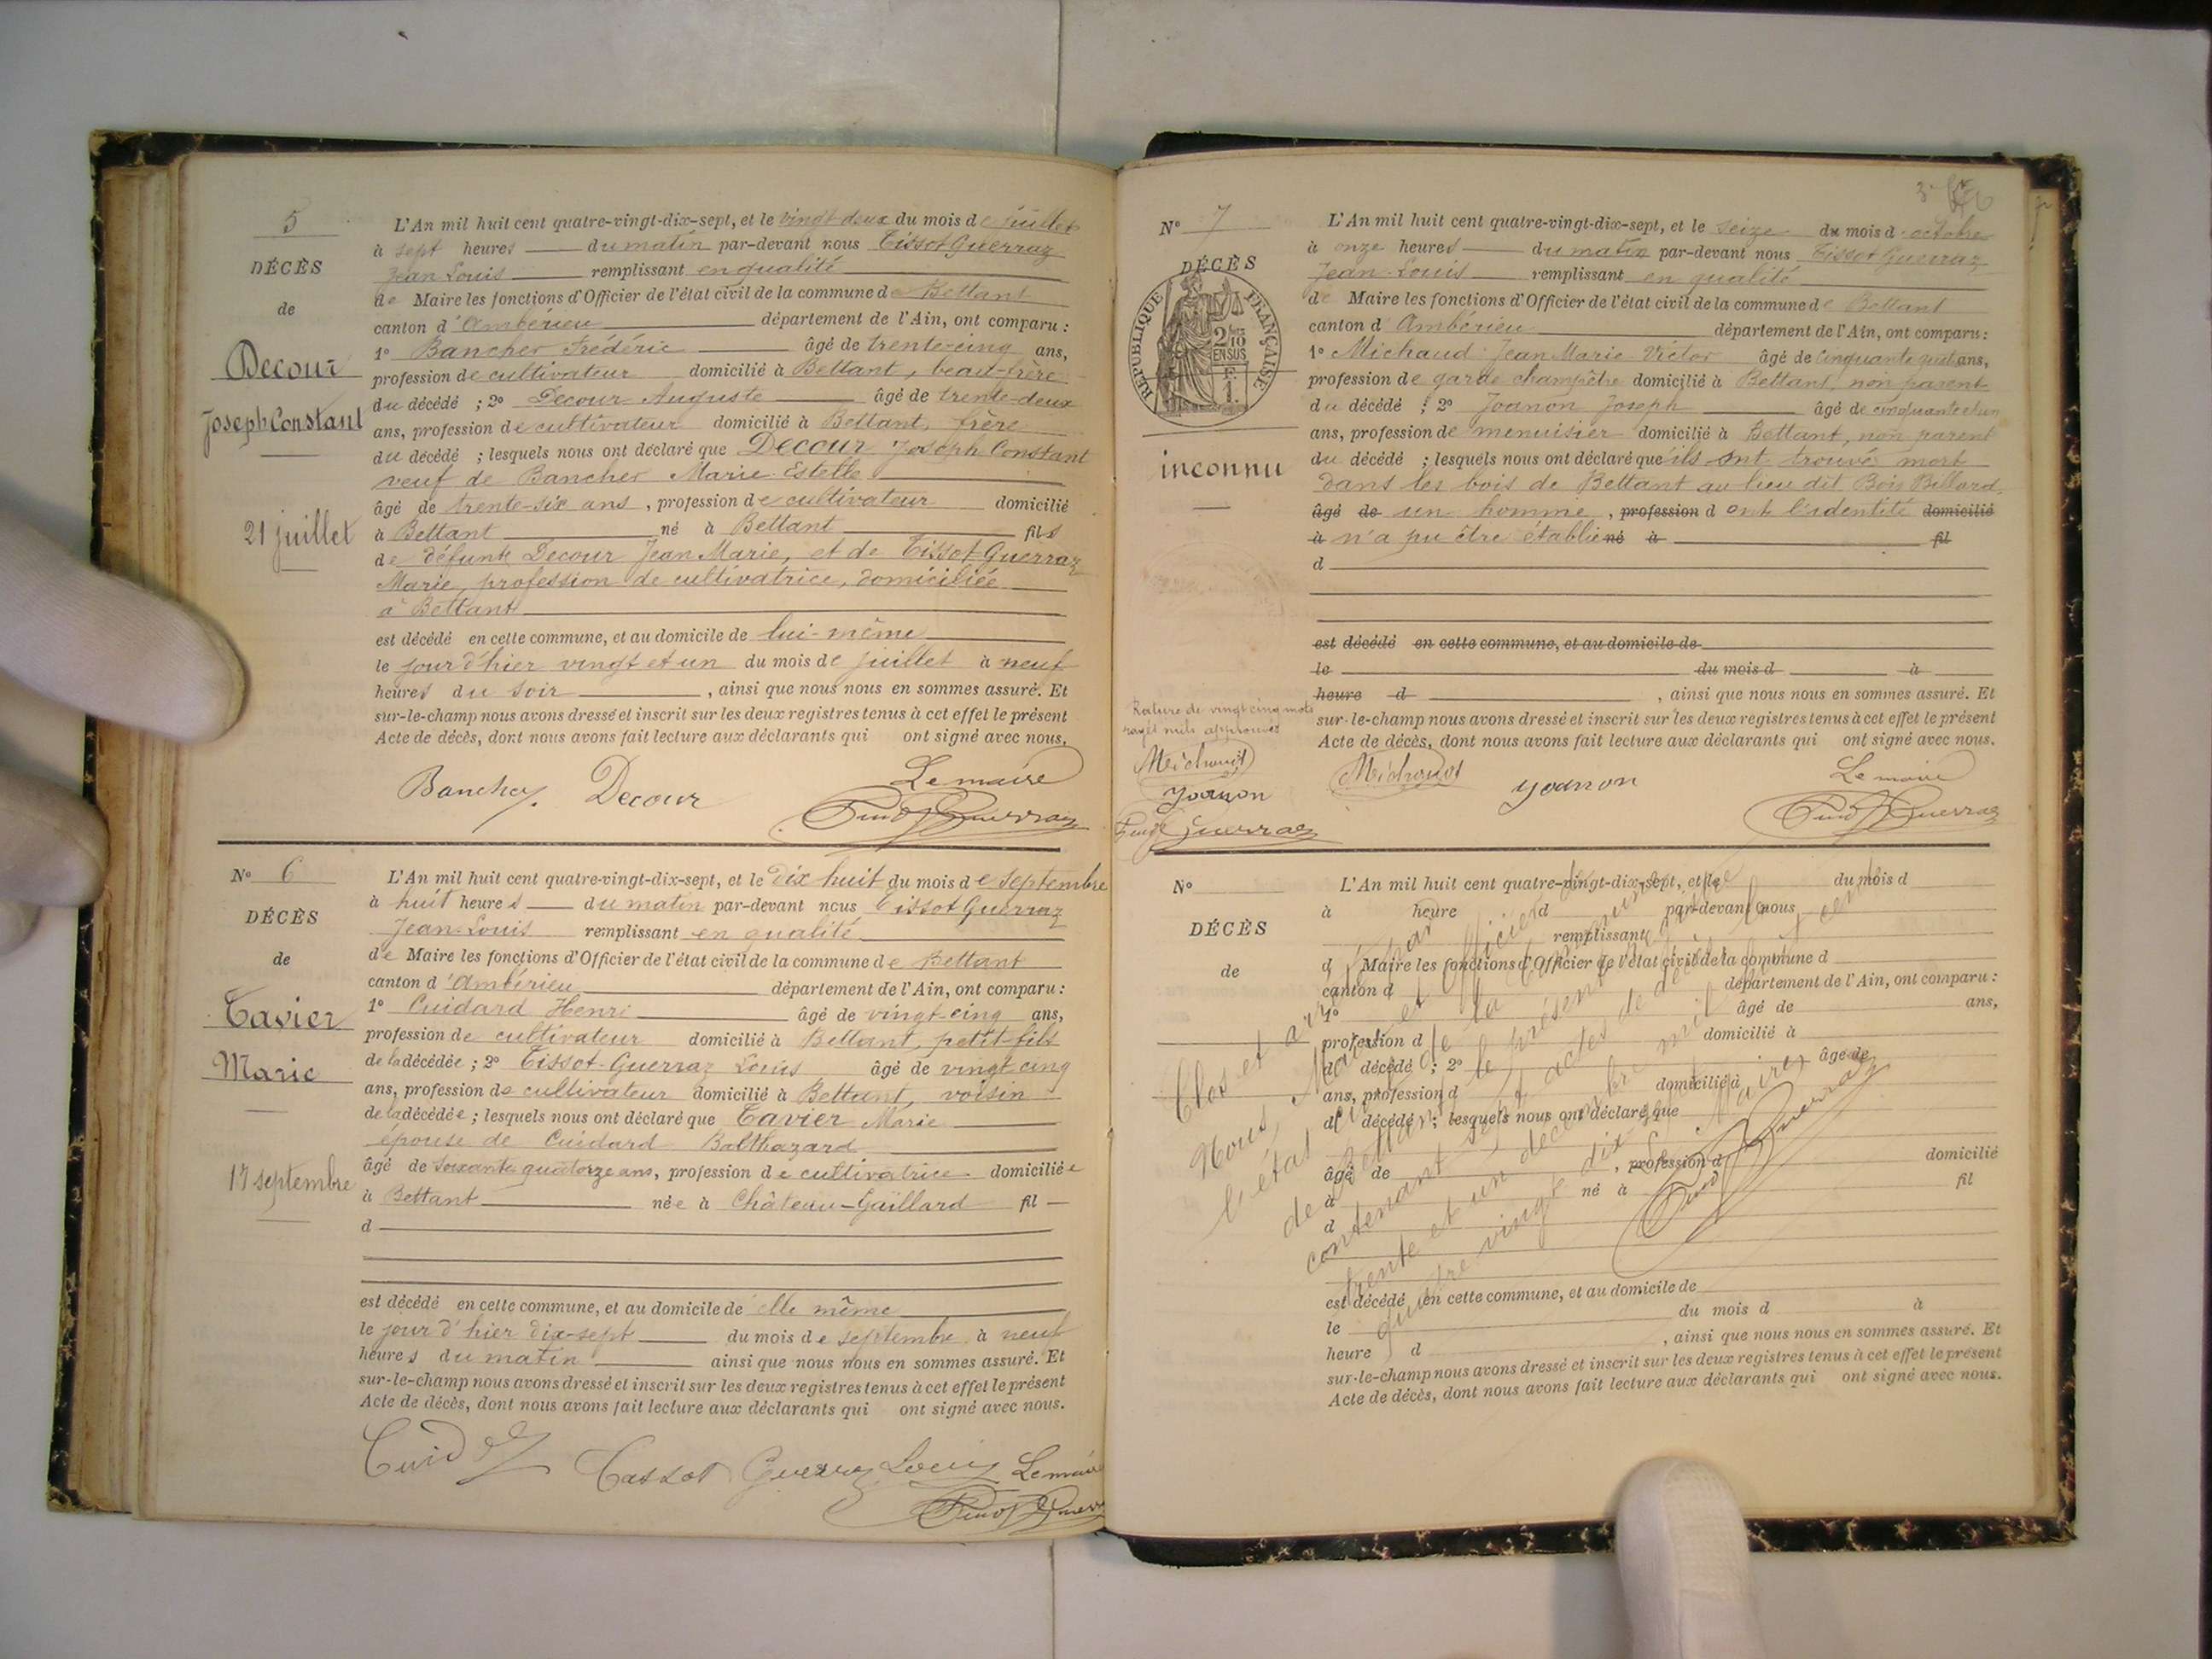 5
DÉCÈS
de
Decour
Joseph Constant
21 juillet
L'An mil huit cent quatre-vingt-dix-sept, et le vingt-deux du mois de juillet
à sept heures du matin par-devant nous Tissot Guerraz
Jean Louis remplissant en qualité
de Maire les fonctions d'Officier de l'état civil de la commune de Bettant
canton d'Ambérieu département de l'Ain, ont comparu :
1° Bancher Frédéric âgé de trente-cinq ans,
profession de cultivateur domicilié à Bettant, beau-frère
du décédé ; 2° Decour Auguste âgé de trente-deux
ans, profession de cultivateur domicilié à Bettant, frère
du décédé ; lesquels nous ont déclaré que Decour Joseph Constant
veuf de Bancher Marie Estelle
âgé de trente-six ans, profession de cultivateur domicilié
à Bettant né à Bettant fils
de défunt Decour Jean Marie, et de Tissot Guerraz
Marie, profession de cultivatrice, domiciliée
à Bettant
est décédé en cette commune, et au domicile de lui-même
le jour d'hier vingt et un du mois de juillet à neuf
heures du soir, ainsi que nous nous en sommes assuré. Et
sur-le-champ nous avons dressé et inscrit sur les deux registres tenus à cet effet le présent
Acte de décès, dont nous avons fait lecture aux déclarants qui ont signé avec nous.
Bancher Decour Le maire
Guerraz
N° 6
DÉCÈS
de
Tavier
Marie
17 septembre
L'An mil huit cent quatre-vingt-dix-sept, et le dix huit du mois de Septembre
à huit heures du matin par-devant nous Tissot Guerraz
Jean-Louis remplissant en qualité
de Maire les fonctions d'Officier de l'état civil de la commune de Bettant
canton d'Ambérieu département de l'Ain, ont comparu :
1° Cuidard Henri âgé de vingt-cinq ans,
profession de cultivateur domicilié à Bettant, petit-fils
de la décédée ; 2° Tissot-Guerraz Louis âgé de vingt cinq
ans, profession de cultivateur domicilié à Bettant, voisin
de la décédée ; lesquels nous ont déclaré que Tavier Marie
épouse de Cuidard Balthazard
âgé de soixante quatorze ans, profession de cultivatrice domiciliée
à Bettant née à Château-Gaillard fil
d
est décédé en cette commune, et au domicile de elle même
le jour d'hier dix-sept du mois de septembre à neuf
heures du matin ainsi que nous nous en sommes assuré. Et
sur-le-champ nous avons dressé et inscrit sur les deux registres tenus à cet effet le présent
Acte de décès, dont nous avons fait lecture aux déclarants qui ont signé avec nous.
Guerraz Louis Le maire
N° 7
DÉCÈS
RÉPUBLIQUE FRANÇAISE
2/10 EN SUS
inconnu
L'An mil huit cent quatre-vingt-dix-sept, et le seize du mois d'octobre
à onze heures du matin par-devant nous Tissot Guerraz
Jean-Louis remplissant en qualité
de Maire les fonctions d'Officier de l'état civil de la commune de Bettant
canton d'Ambérieu département de l'Ain, ont comparu :
1° Michaud Jean Marie Victor âgé de cinquante ans,
profession de garde champêtre domicilié à Bettant, non parent
du décédé ; 2° Joanon Joseph âgé de cinquante et un
ans, profession de menuisier domicilié à Bettant, non parent
du décédé ; lesquels nous ont déclaré que ils ont trouvés mort
dans les bois de Bettant au lieu dit Bois Billard,
âgé de un homme, profession d ont l'identité domicilié
à n'a pu être établie né à fil
d
est décédé en cette commune, et au domicile de
le du mois d à
heure d , ainsi que nous nous en sommes assuré. Et
sur-le-champ nous avons dressé et inscrit sur les deux registres tenus à cet effet le présent
Acte de décès, dont nous avons fait lecture aux déclarants qui ont signé avec nous.
Rature de vingt cinq mots
rayés nuls approuvés
Michaud
Joanon
Guerraz
Michaud Joanon Le maire
Guerraz
N°
DÉCÈS
de
L'An mil huit cent quatre-vingt-dix-sept, et le du mois d
à heure d par-devant nous
remplissant
d Maire les fonctions d'Officier de l'état civil de la commune d
canton d département de l'Ain, ont comparu :
1° âgé de ans,
profession d domicilié à
d décédé ; 2° âgé de
ans, profession d domicilié à
d décédé ; lesquels nous ont déclaré que
âgé de , profession d domicilié
à né à fil
d
est décédé en cette commune, et au domicile de
le du mois d à
heure d , ainsi que nous nous en sommes assuré. Et
sur-le-champ nous avons dressé et inscrit sur les deux registres tenus à cet effet le présent
Acte de décès, dont nous avons fait lecture aux déclarants qui ont signé avec nous.
Clos et arrêté par
Nous, Maire et Officier de
l'état civil de la commune
de Bettant le présent registre
contenant sept actes de décès le
trente et un décembre mil huit cent
quatre vingt dix sept
Le Maire
Guerraz